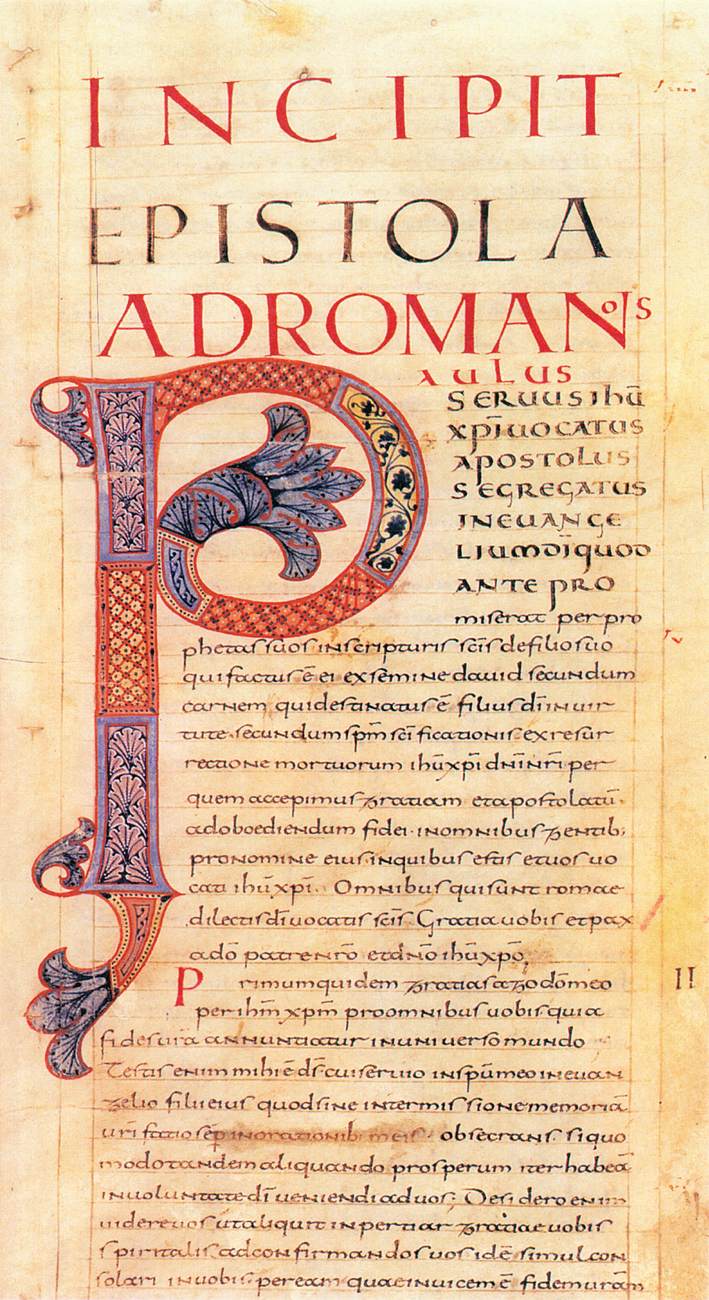 INCIPIT
EPISTOLA
ADROMANoS
AULUS
SERUUS ihū
xp̄i UOCATUS
APOSTOLUS
SEGREGATUS
INEUANGE
LIUM dī quod
ANTE PRO
miserat per pro
phetas suos inscripturis sc̄is defilio suo
qui factus ē ei exsemine dauid secundum
carnem qui destinatus ē filius dī inuir
tute secundum sp̄m sc̄ificationis exresur
rectione mortuorum ihū xp̄i dnī nr̄i per
quem accepimus gratiam etapostolatū
adoboediendum fidei inomnibus gentib;
pronomine eius inquibus estis etuos uo
cati ihū xp̄i. Omnibus qui sunt romae
dilectis dī uocatis sc̄is. Gratia uobis etpax
ado͞ patre nr̄o etdn̄o ihū xp̄o.
Primum quidem gratias ago dō meo II
per ihm̄ xp̄m pro omnibus uobis quia
fides ur̄a annuntiatur inuniuerso mundo
Testis enim mihi ē ds̄ cui seruio insp̄u meo ineuan
gelio filii eius quod sine intermissione memoriā
ur̄i facio sēp inorationib; meis obsecrans siquo
modo tandem aliquando prosperum iter habeā
inuoluntate dī ueniendi aduos. Desidero enim
uidere uos ut aliquit inpertiar gratiae uobis
spiritalis adconfirmandos uos idē simul con
solari inuobis per eam quae inuicem ē fidem uram